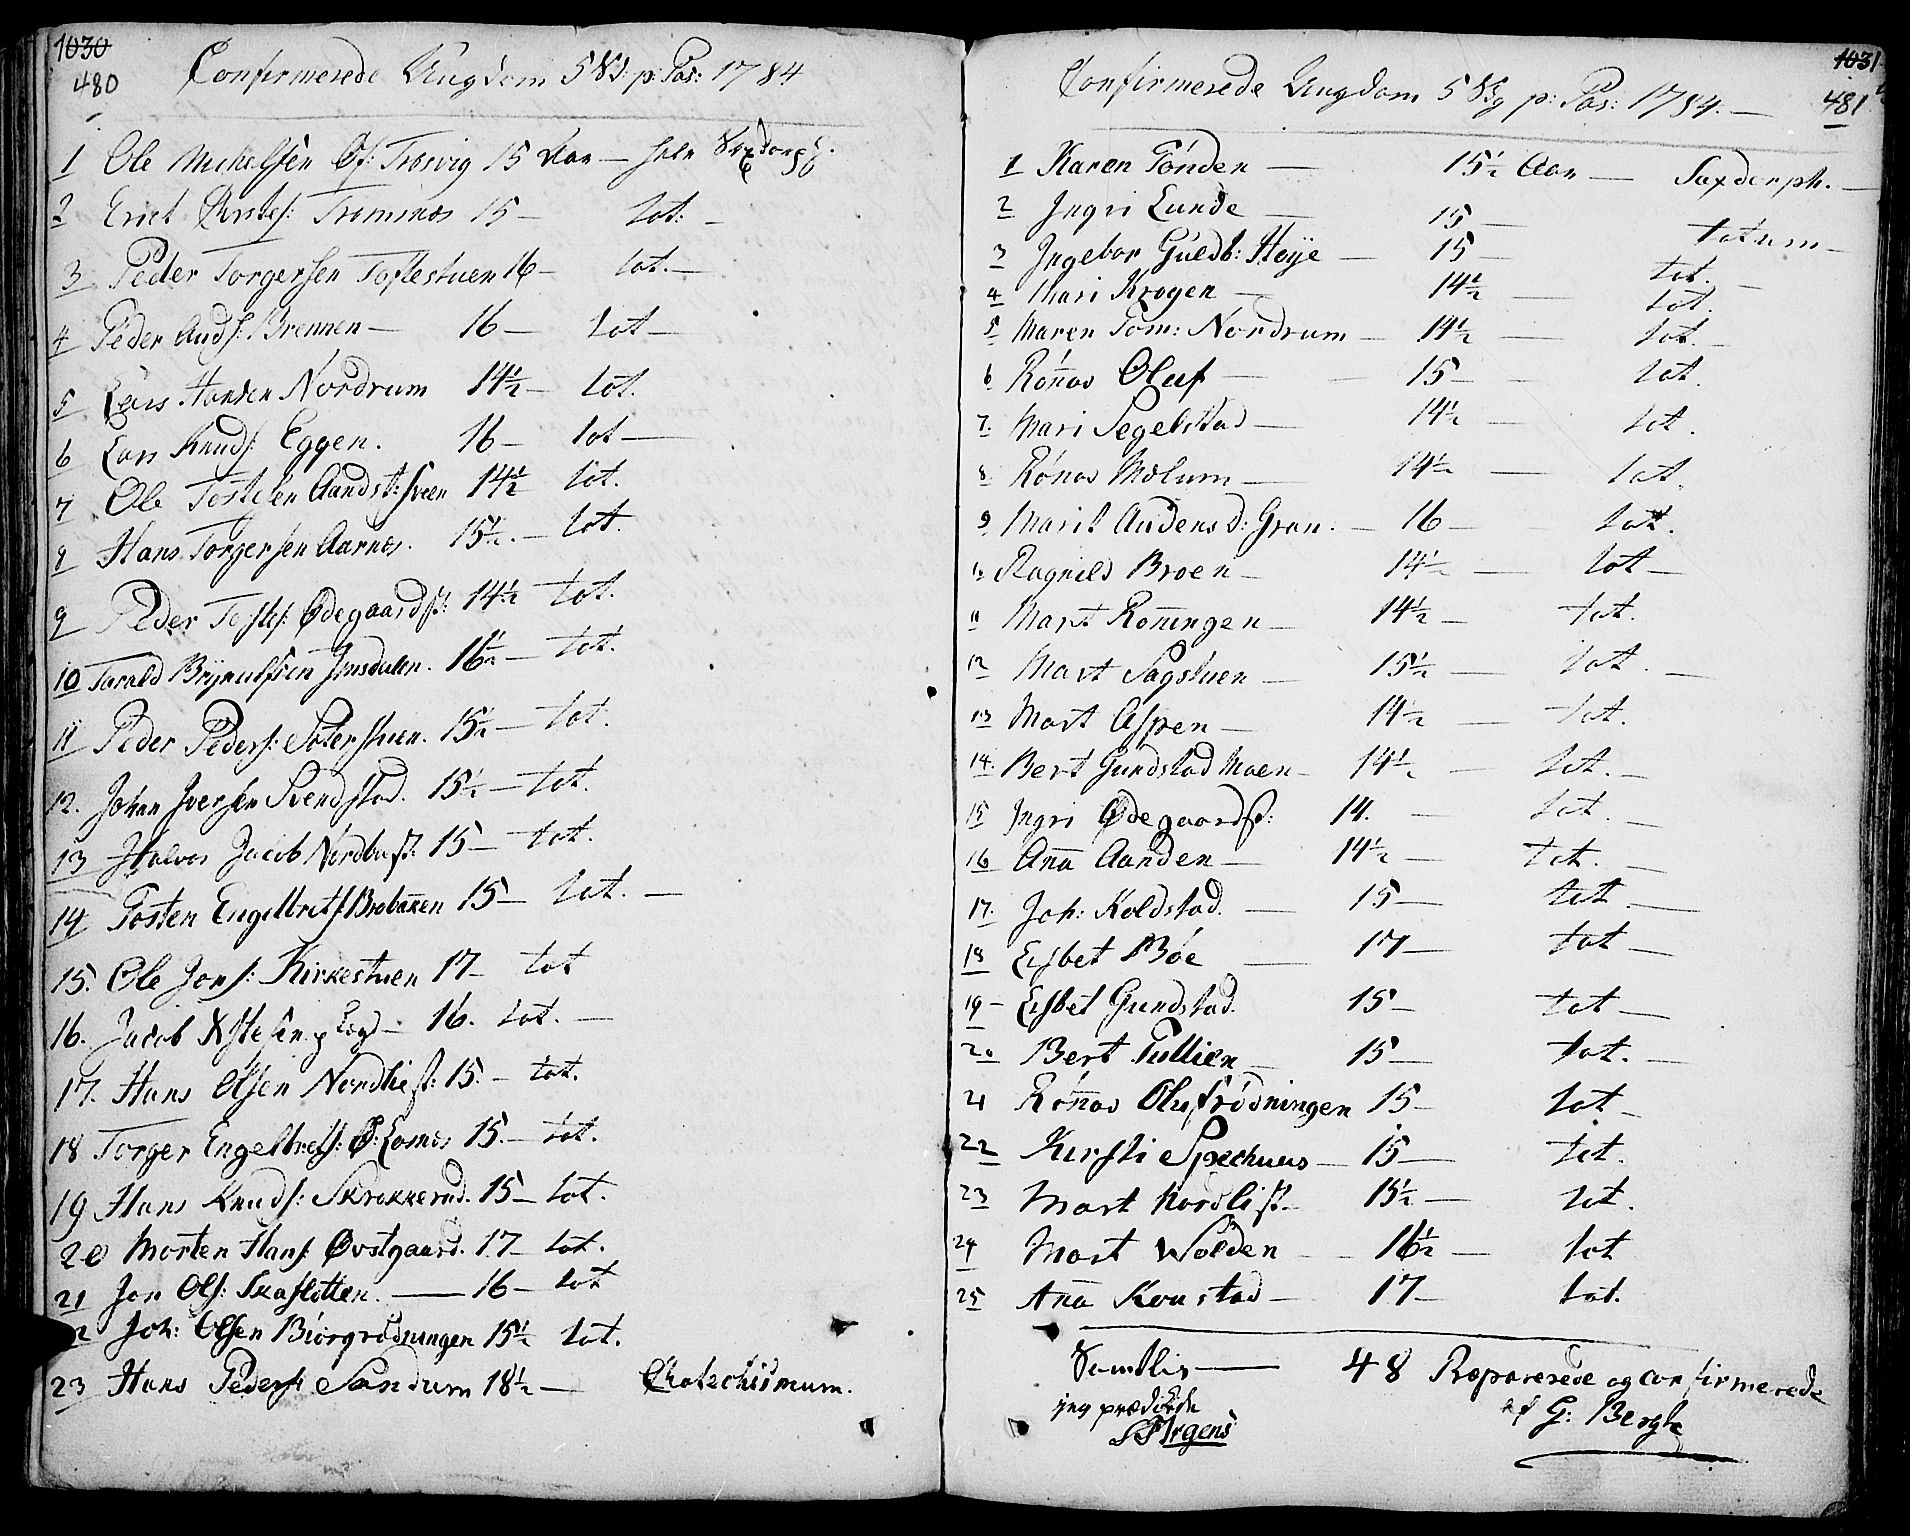 1030
480
Confirmerede Ungdom 5 S: p: Pas: 1784
1 Ole Michelsen Øf: Trosvig 15 Aar — heele
2 Erich Christs: Tromnæs 15 — tot: —
3 Peder Torgersen Toftestuen 16 — tot. —
4 Peder Auds: Brennen — 16 — tot —
5 Lars Hansen Nordrum 14½ — tot.
6 Lars Knuds: Eggen. 16 — tot —
7 Ole Tostesen Aandst: Sveen 14½ tot.
8 Hans Torgersen Aarnes. 15½. — tot.
9 Peder Tostes: Ødegaardst: 14½ tot.
10 Tarald Brynulfsen Jonsdalen. 16½ — tot.
11 Peder Peders: Sæterstuen. 15½ — tot.
12. Johan Iversen Svendstad. 15½ — tot.
13 Halvor Jacob Nordbust: 15 — tot.
14 Tosten Engelbrets: Brobakken 15 — tot. —
15. Ole Jons: Kirkestuen 17 — tot
16. Jacob 16. tot. —
17. Hans Olsen Nordlist: 15. — tot.
18 Torger Engelbrets: Ø: Losnæs 15. — tot.
19 Hans Knuds: Skrakkerud. 15 — tot.
20 Morten Hans: Øvstgaard. 17 — tot.
21 Jon Ols: Skaslotten. — 16 — tot
2 Joh: Olsen Biørgrødningen 15½ tot.
23 Hans Peders: Sandum 18½ — Chatechismum.
1031
481
Confirmerede Ungdom 5 Sg p: Pas: 1784. —
1 Karen Tønden — 15½ Aar — Saxdorph. —
2 Ingri Lunde — 15 — totum —
3 Ingebor Guldb: Høye — 15 — tot. —
4 Mari Krogen — 14½ — tot.
5 Maren Tom: Nordrum — 14½ — tot. —
6 Rønnos Oluf — 15 — tot.
7. Mari Segelstad — 14½ — tot.
8 Rønos Mælum — 14½ — tot.
9 Marit Audensd: Gran. — 16 — tot.
10 Ragnild Broen — 14½ — tot —
11 Marit Rønningen — 14½ — tot.
12 Marit Sagstuen — 15½ — tot. —
13 Marit Aspen — 14½ — tot.
14. Bert Gundstad Moen — 14½ — tot. —
15 Ingri Ødegaardst: 14. — tot. —
16 Anna Aanden — 14½ — tot. —
17. Joh: Koldstad. — 15 — tot —
18 Elsbet Bøe — 17 — tot —
19 — Elsbet Gundstad. 15 — tot —
20 Bert Tullien — 15 — tot. —
21 Rønnos Olufsrødningen 15 — tot —
22 Kirsti Spechuus — 15 — tot.
23 Marit Nordlist. — 15½ — tot.
24 Marit Wolden — 16½ — tot
25 Anna Konstad — 17 — tot.
Samtlig — 48 Præparerede og confirmerede
af G: Bergh
jeg prædikede
Irgens